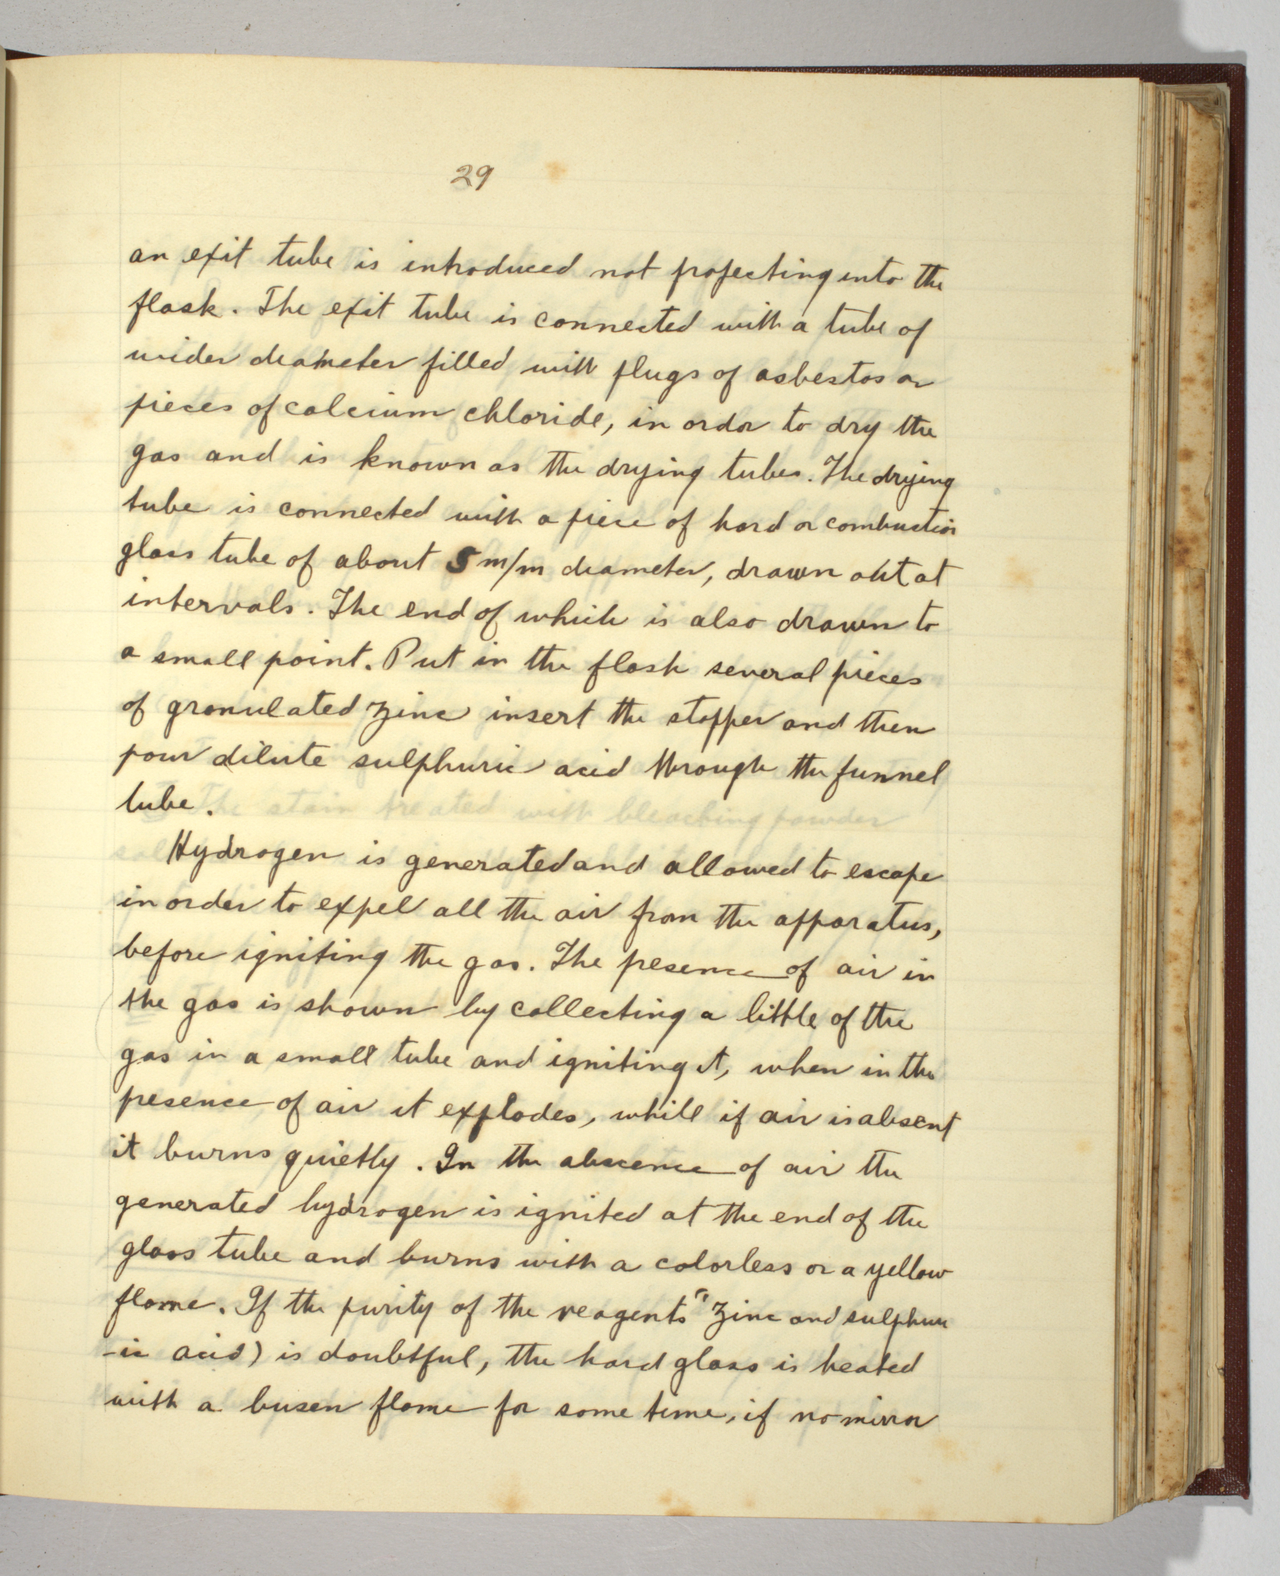 29
an exit tube is introduced not projecting into the
flask. The exit tube is connected with a tube of
wider diameter filled with plugs of asbestos or
pieces of calcium chloride, in order to dry the
gas and is known as the drying tubes. The drying
tube is connected with a piece of hard or combustion
glass tube of about 5 m/m diameter, drawn out at
intervals. The end of which is also drawn to
a small point. Put in the flask several pieces
of granulated zinc insert the stopper and then
pour dilute sulphuric acid through the funnel
tube.
Hydrogen is generated and allowed to escape
in order to expel all the air from the apparatus,
before igniting the gas. The presence of air in
the gas is shown by collecting a little of the
gas in a small tube and igniting it, when in the
presence of air it explodes, while if air is absent
it burns quietly. In the abscence of air the
generated hydrogen is ignited at the end of the
glass tube and burns with a colorless or a yellow
flame. If the purity of the reagents (zinc and sulphur
-ic acid) is doubtful, the hard glass is heated
with a busen flame for some time, if no mirror